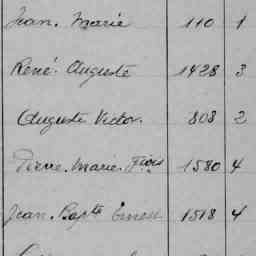 Jean. Marie 110 1
René. Auguste 1428 3
Auguste Victor. 808 2
Pierre. Marie. Fçois 1580 4
Jean. Bapte Ernest 1518 4